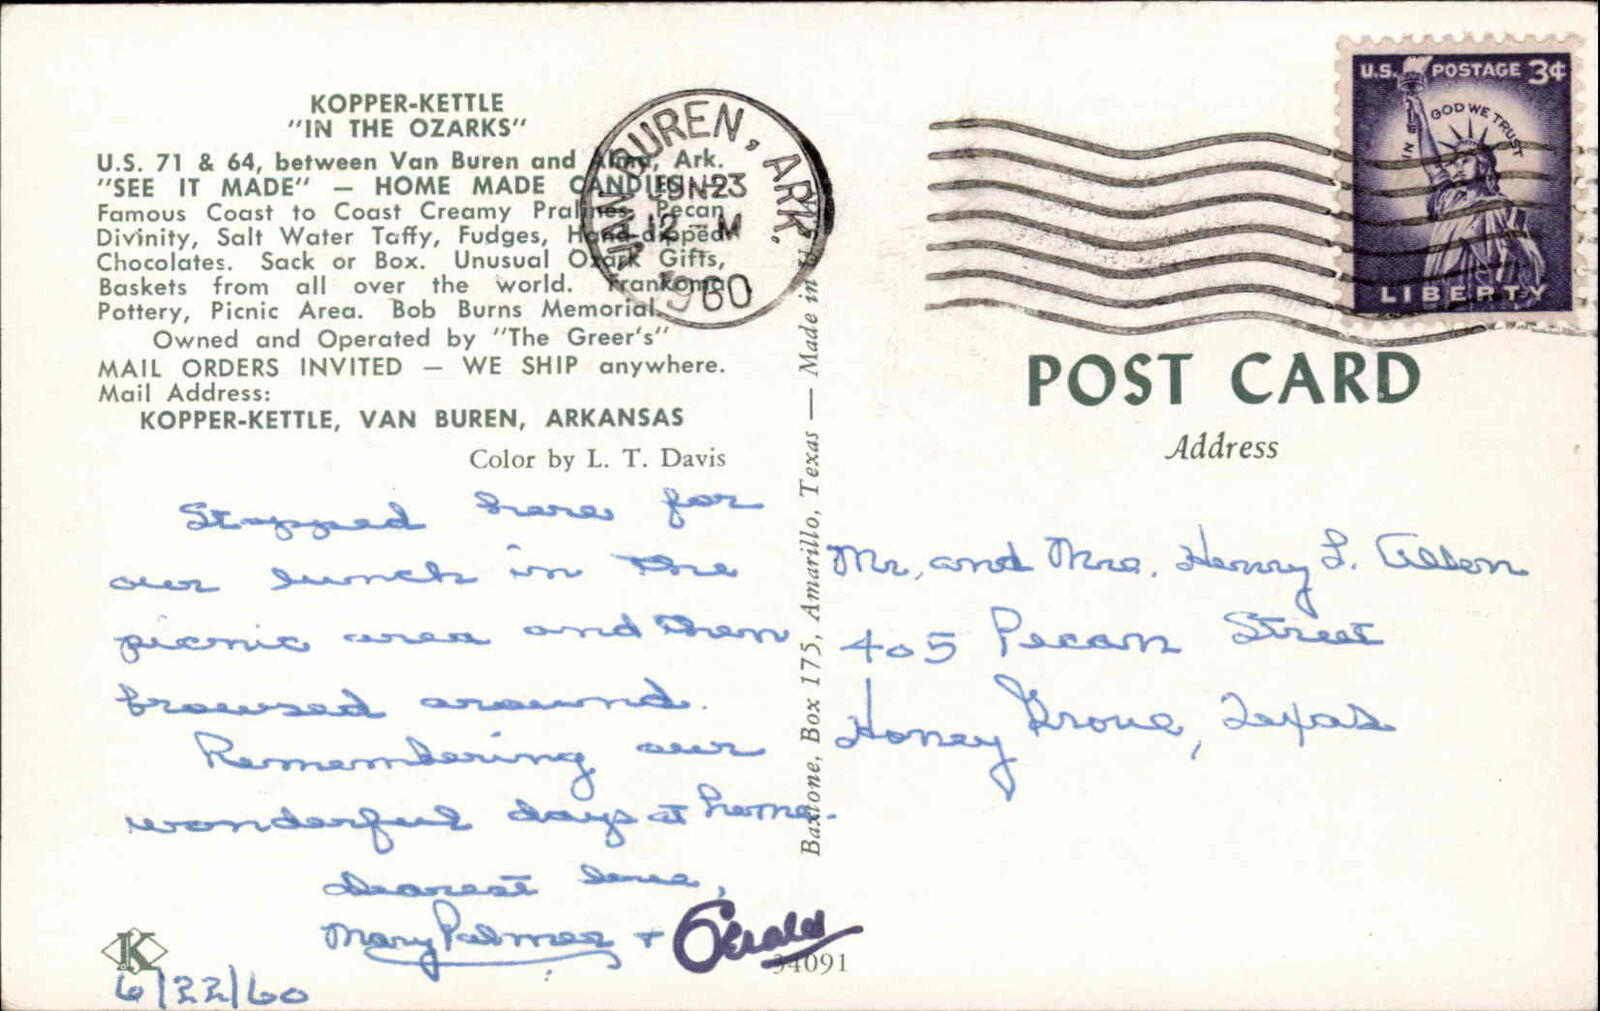 KOPPER-KETTLE
"IN THE OZARKS"
U.S. 71 & 64, between Van Buren and Alma, Ark.
"SEE IT MADE" — HOME MADE CANDIES
Famous Coast to Coast Creamy Pralines, Pecan
Divinity, Salt Water Taffy, Fudges, Hand-dipped
Chocolates. Sack or Box. Unusual Ozark Gifts,
Baskets from all over the world. Frankoma
Pottery, Picnic Area. Bob Burns Memorial.
Owned and Operated by "The Greer's"
MAIL ORDERS INVITED — WE SHIP anywhere.
Mail Address:
KOPPER-KETTLE, VAN BUREN, ARKANSAS
Color by L. T. Davis
Stopped here for
our lunch in the
picnic area and then
browsed around.
Remembering our
wonderful days at home.
Dearest love,
Mary Palmer + Gerald
K
6/22/60
34091
Baxtone, Box 175, Amarillo, Texas — Made in U.S.A.
VAN BUREN, ARK.
JUN 23
12 - M
1960
U.S. POSTAGE 3¢
IN GOD WE TRUST
LIBERTY
POST CARD
Address
Mr. and Mrs. Henry L. Allen
405 Pecan Street
Honey Grove, Texas